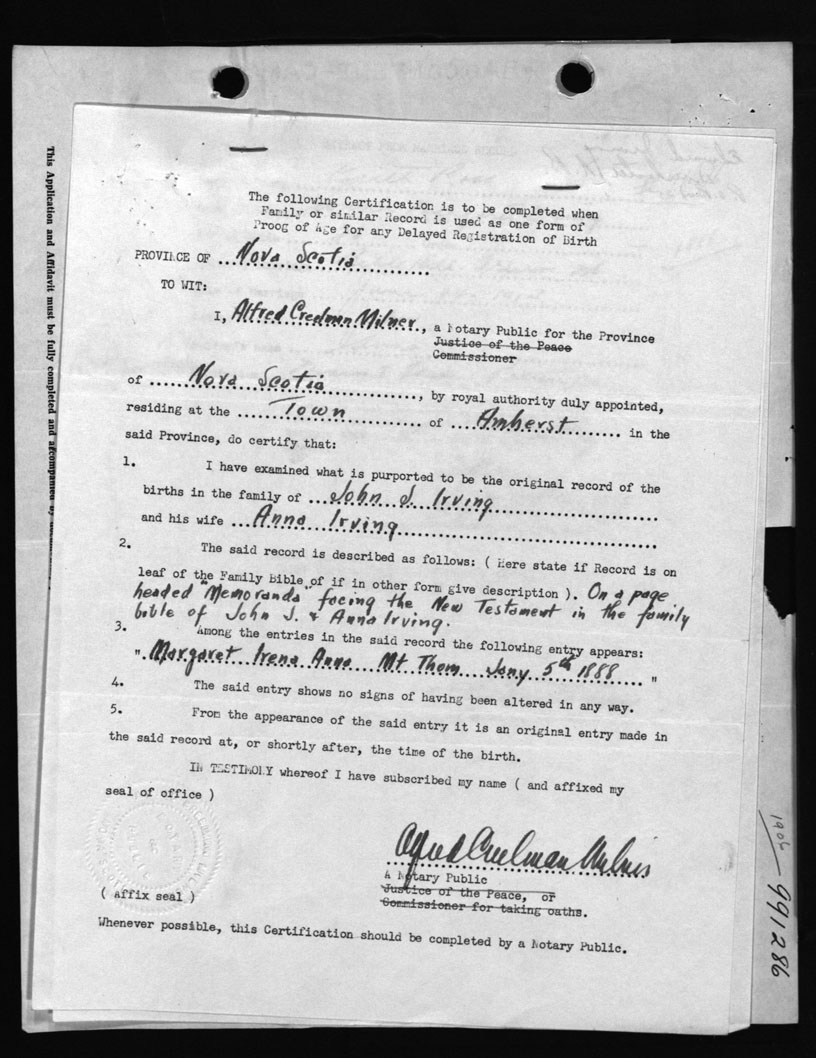 This Application and Affidavit must be fully completed and accompanied by
The following Certification is to be completed when
Family or similar Record is used as one form of
Proog of Age for any Delayed Registration of Birth
PROVINCE OF ...Nova Scotia...
TO WIT:
I, Alfred Creelman Milner, a Notary Public for the Province
Justice of the Peace
Commissioner
of ...Nova Scotia..., by royal authority duly appointed,
residing at the ...Town... of ...Amherst... in the
said Province, do certify that:
1. I have examined what is purported to be the original record of the
births in the family of ...John J. Irving...
and his wife ...Anna Irving...
2. The said record is described as follows: ( Here state if Record is on
leaf of the Family Bible of if in other form give description ). On a page
headed "Memoranda" facing the New Testament in the family
bible of John J. & Anna Irving.
3. Among the entries in the said record the following entry appears:
" Margaret Irena Anna Mt Thom Jany 5th 1888 "
4. The said entry shows no signs of having been altered in any way.
5. From the appearance of the said entry it is an original entry made in
the said record at, or shortly after, the time of the birth.
IN TESTIMONY whereof I have subscribed my name ( and affixed my
seal of office )
Alfred Creelman Milner
A Notary Public
Justice of the Peace, or
Commissioner for taking oaths.
( Affix seal )
Whenever possible, this Certification should be completed by a Notary Public.
1906 — 991286